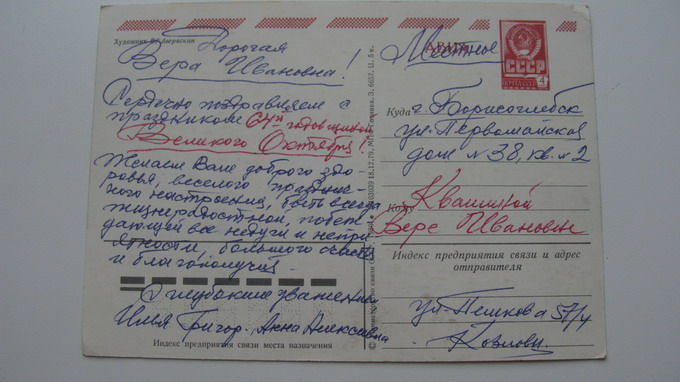 Художник
Дорогая
Вера Ивановна!
Сердечно поздравляем с
праздником 64й годовщиной
Великого Октября!
Желаем Вам доброго здо-
ровья, веселого празднич-
ного настроения, быть всегда
жизнерадостной, побеж-
дающей все недуги и непри-
ятности, большого счастья
и благополучия.
С глубоким уважением
Григор. Анна Алексевна
Индекс предприятия связи места назначения
Местное
АВИА
СССР
4
Куда г. Борисоглебск
ул. Первомайская
дом № 38, кв. № 2
Кому
Вере Ивановне
Индекс предприятия связи и адрес
отправителя
ул. Пешкова 57/4
Козловы